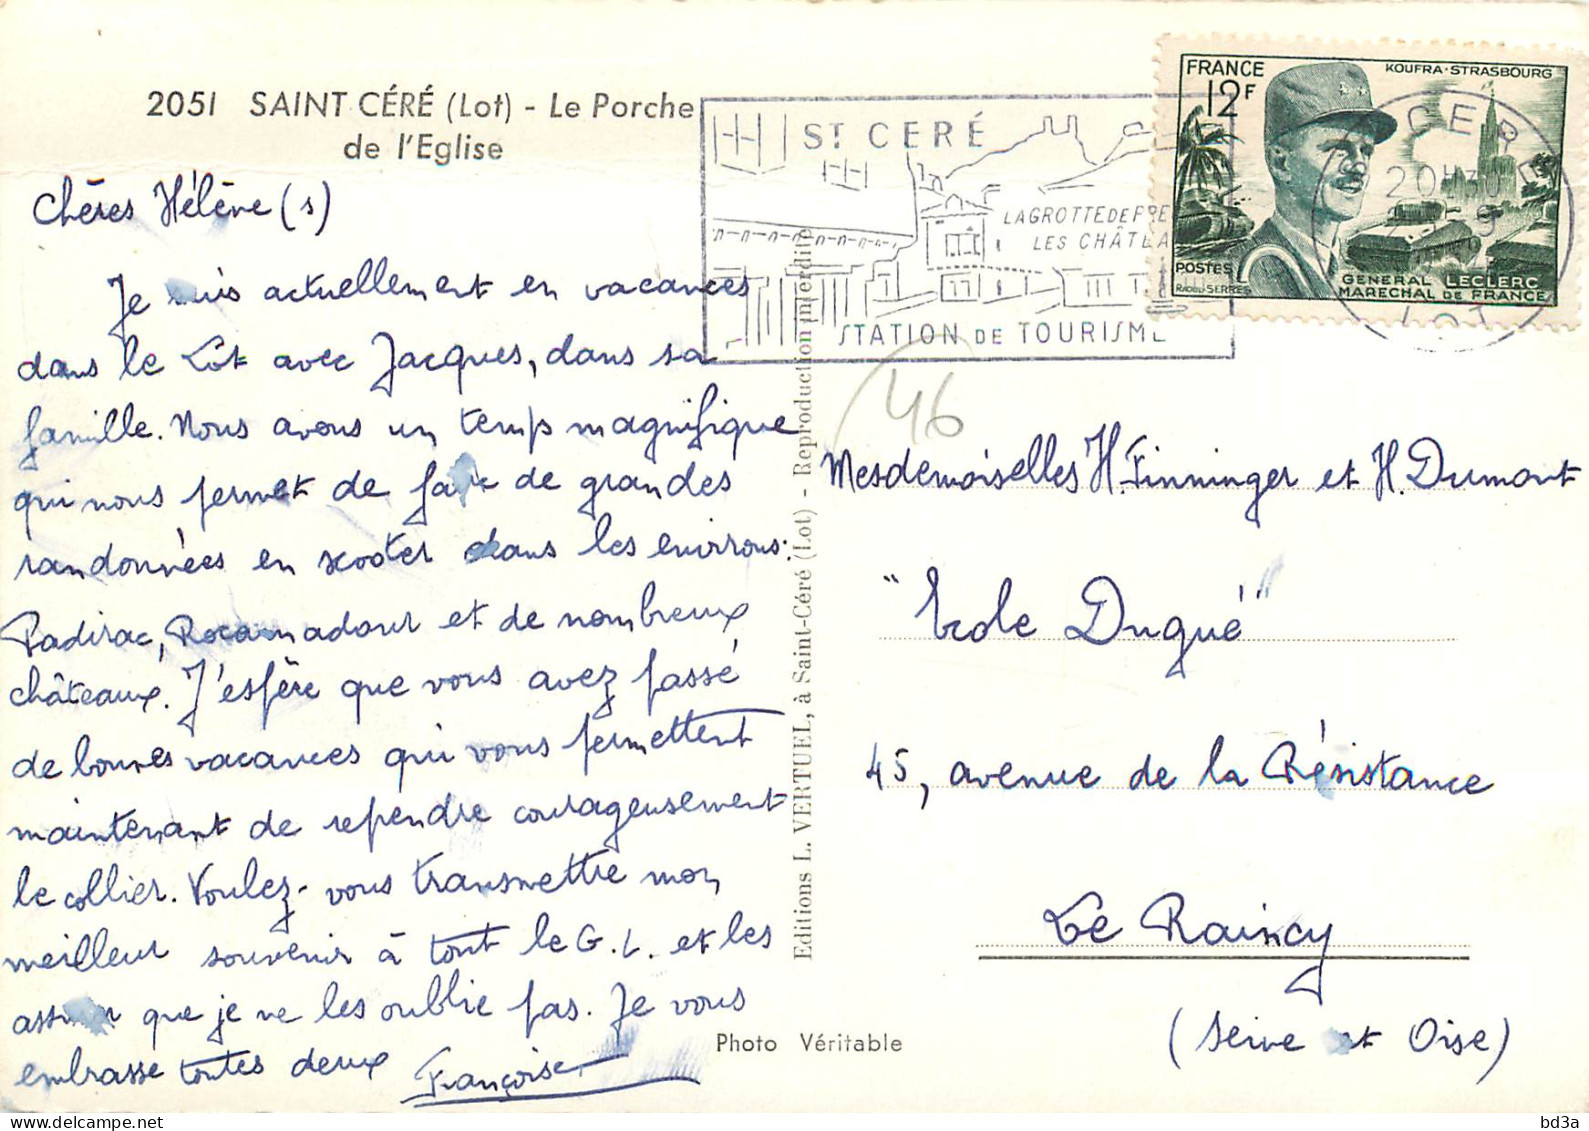 2051 SAINT CÉRÉ (Lot) - Le Porche
de l'Eglise
Chères Hélène(s)
Je suis actuellement en vacances
dans le Lot avec Jacques, dans sa
famille. Nous avons un temps magnifique
qui nous permet de faire de grandes
randonnées en scooter dans les environs:
Padirac, Rocamadour et de nombreux
châteaux. J'espère que vous avez passé
de bonnes vacances qui vous permettent
maintenant de reprendre courageusement
le collier. Voulez-vous transmettre mon
meilleur souvenir à tout le G.L. et les
assurer que je ne les oublie pas. Je vous
embrasse toutes deux Françoise
Editions L. VERTUEL, à Saint-Céré (Lot) - Reproduction interdite
Photo Véritable
ST CERÉ
LA GROTTE DE PRE
LES CHÂTEA
STATION DE TOURISME
FRANCE
12F
KOUFRA-STRASBOURG
POSTES
RAOUL-SERRES
GENERAL LECLERC
MARECHAL DE FRANCE
CERE
20H30
LOT
46
Mesdemoiselles H. Finninger et H. Dumont
"Ecole Dugué"
45, avenue de la Résistance
Le Raincy
(Seine et Oise)
bd3a